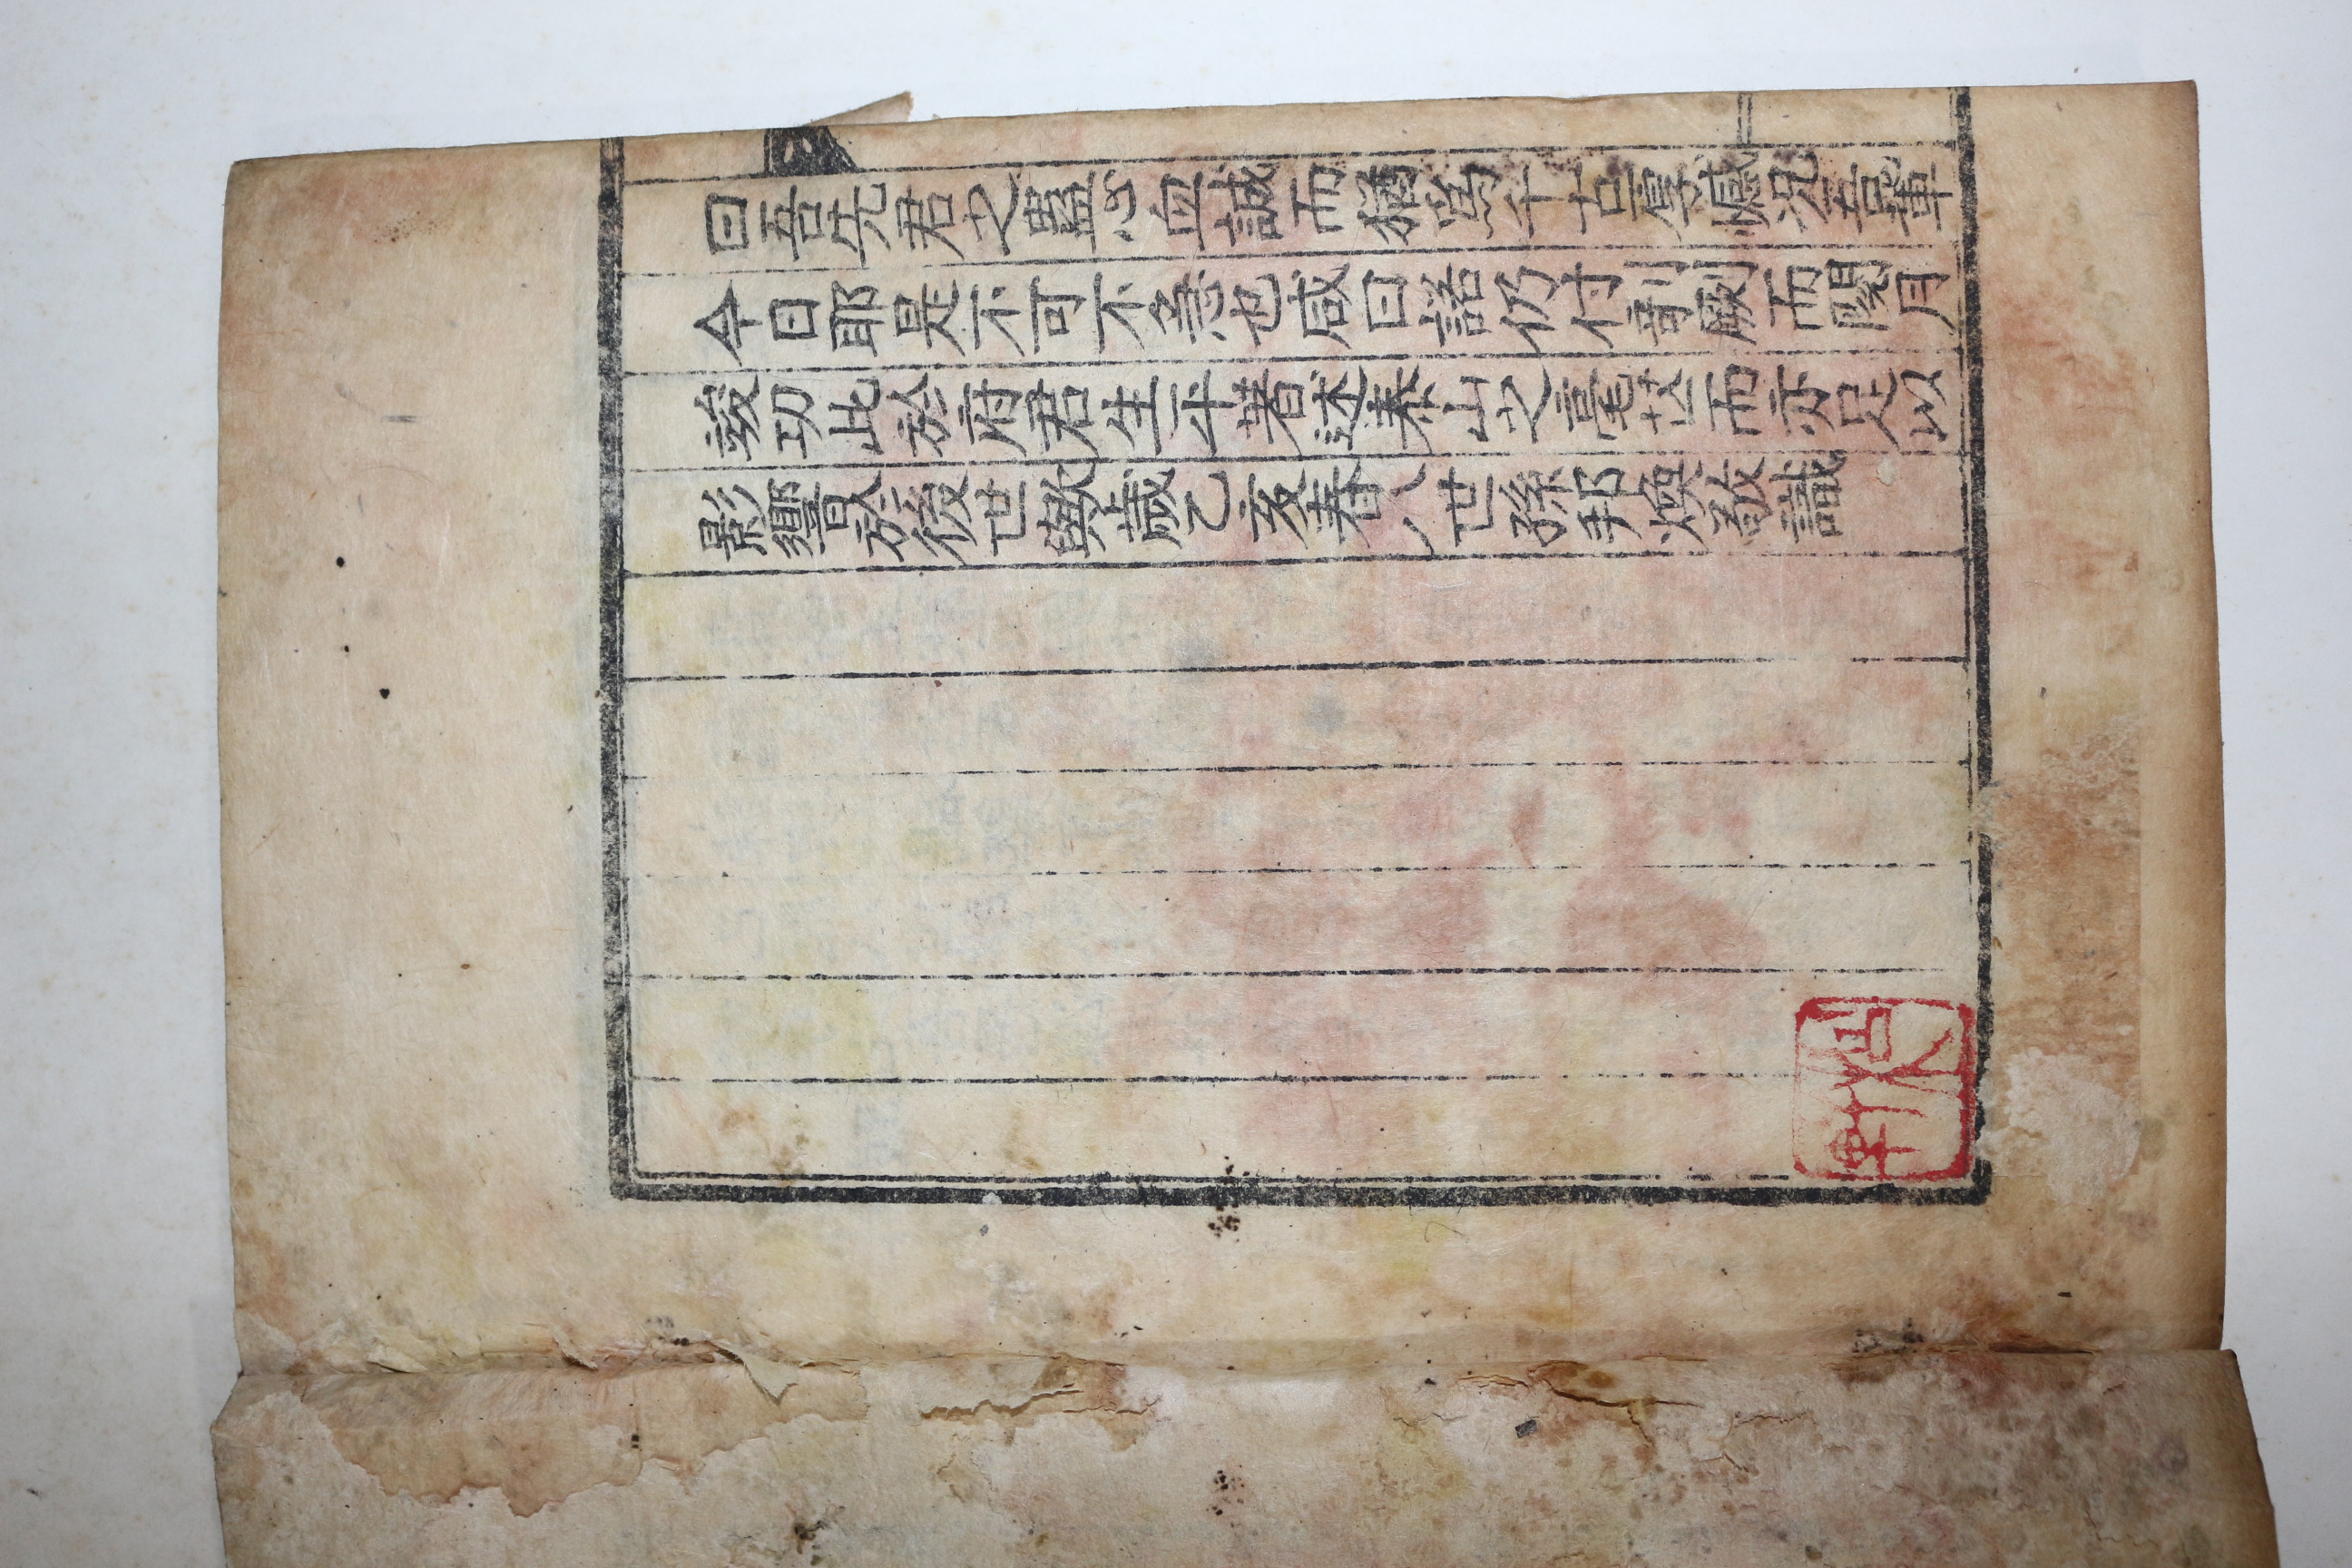 曰吾先君之蠱心血誠而猶爲千古厚憾况吾輩
今日耶是不可不急也咸曰諾仍付剞劂而閱月
竣功此於府君生平著述泰山之毫芒而亦足以
影響於後世歟歲乙亥春八世孫邦煥敬識
軒